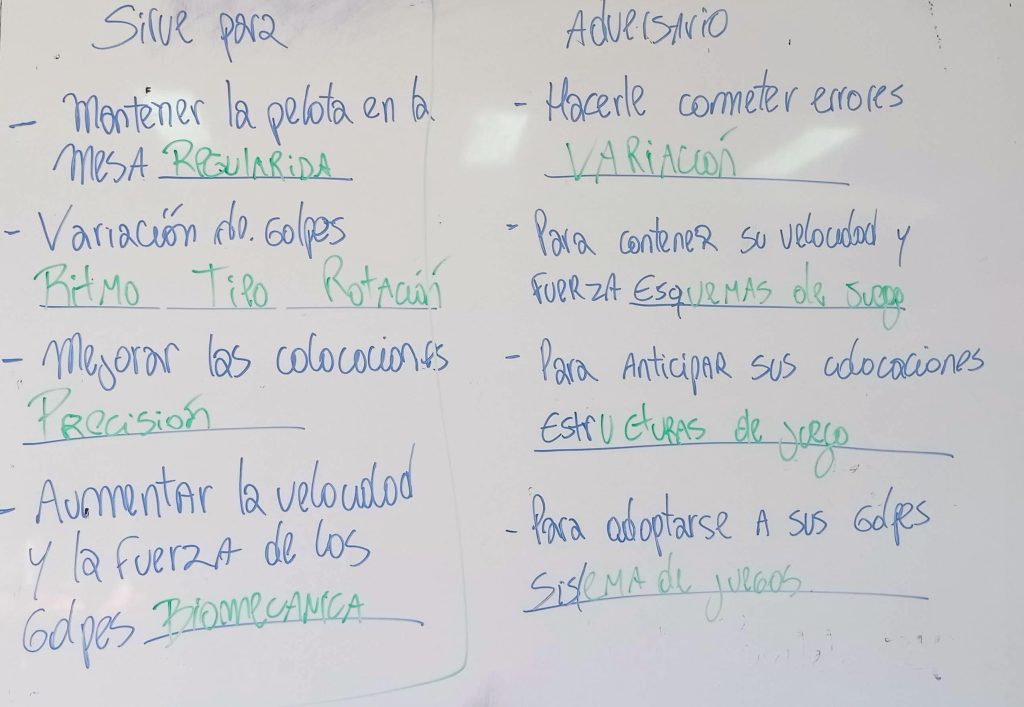 Sirve para
- Mantener la pelota en la
MESA REGULARIDA
- Variación de Golpes
Ritmo Tipo Rotación
- Mejorar las colocaciones
Precisión
- Aumentar la velocidad
y la fuerza de los
Golpes Biomecanica
Adversario
- Hacerle cometer errores
VARIACIÓN
- Para contener su velocidad y
FUERZA ESQUEMAS de juego
- Para ANTICIPAR sus colocaciones
ESTRUCTURAS de juego
- Para adoptarse A sus Golpes
SISTEMA de juegos